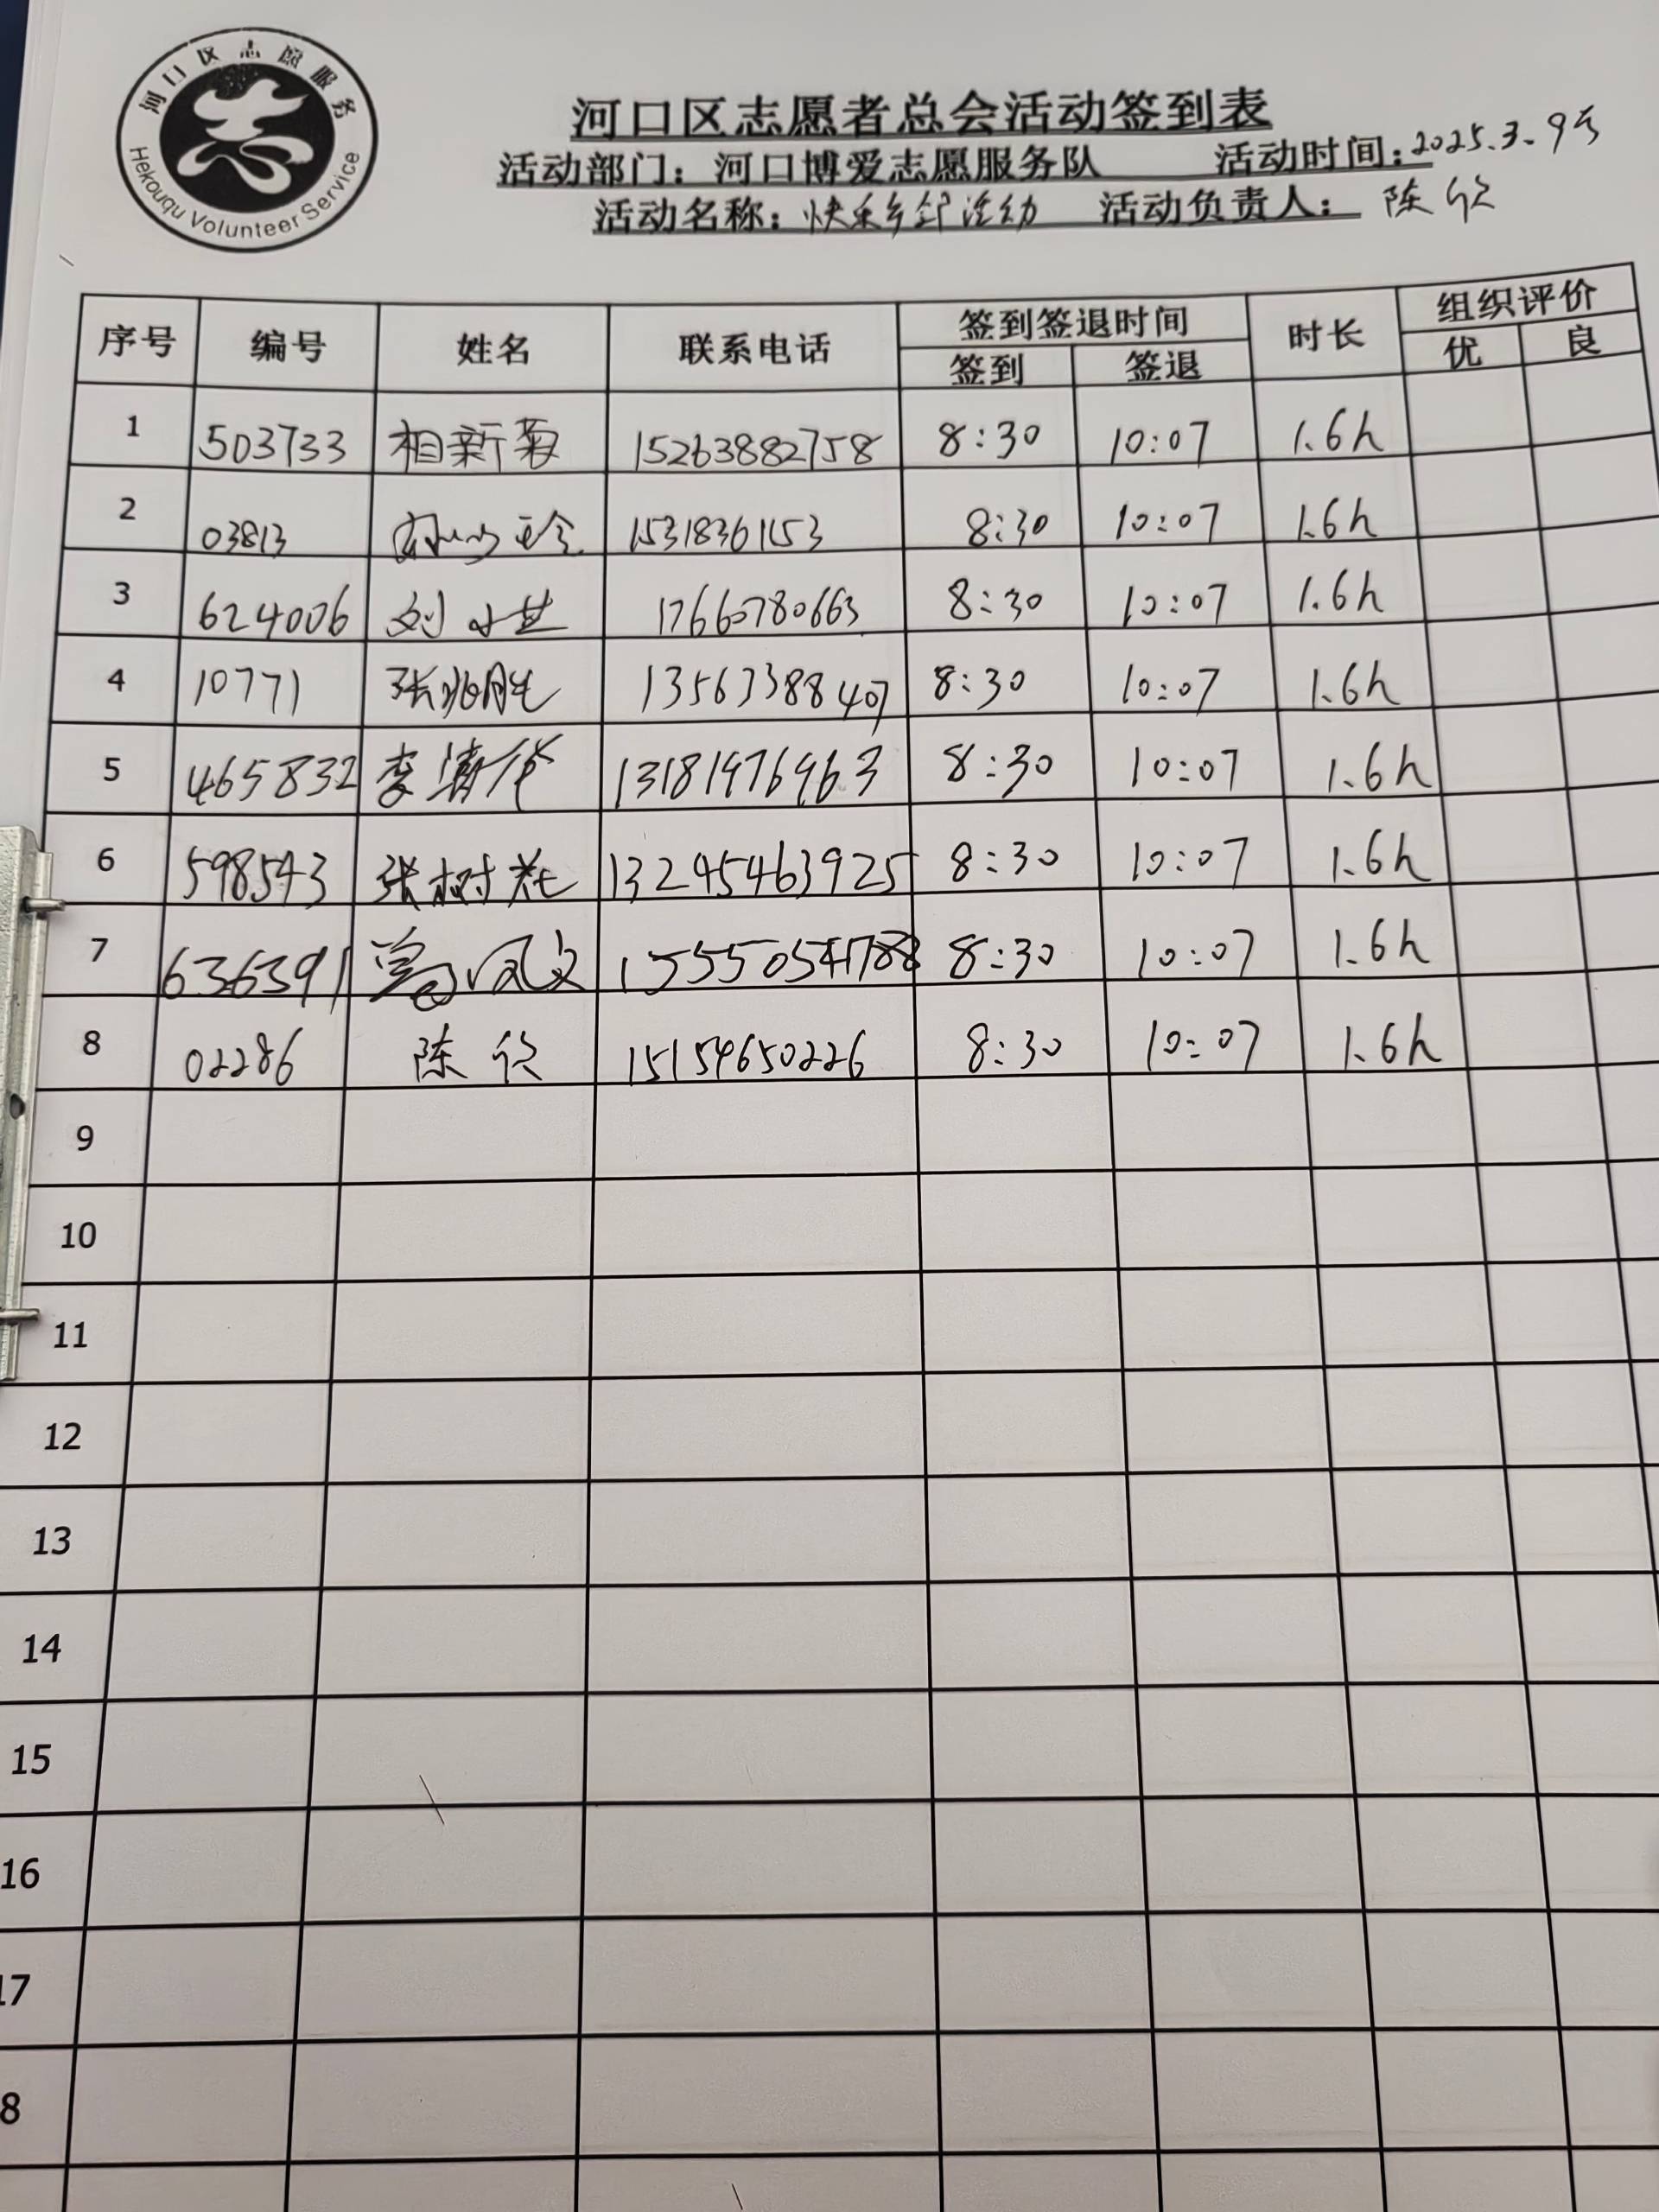 河口区志愿服务
Hekouqu Volunteer Service
河口区志愿者总会活动签到表
活动部门：河口博爱志愿服务队 活动时间：2025.3.9号
活动名称：快乐乡邻活动 活动负责人：陈欣
序号 编号 姓名 联系电话 签到签退时间 时长 组织评价
签到 签退 优 良
1 503733 相新菊 15263882758 8:30 10:07 1.6h
2 03813 15318361153 8:30 10:07 1.6h
3 624006 刘 17660780663 8:30 10:07 1.6h
4 10771 张兆胜 13563388407 8:30 10:07 1.6h
5 465832 李清华 13181976963 8:30 10:07 1.6h
6 598543 张树 13245463925 8:30 10:07 1.6h
7 636391 凤文 8:30 10:07 1.6h
8 02286 陈欣 15154650226 8:30 10:07 1.6h
9
10
11
12
13
14
15
16
17
8